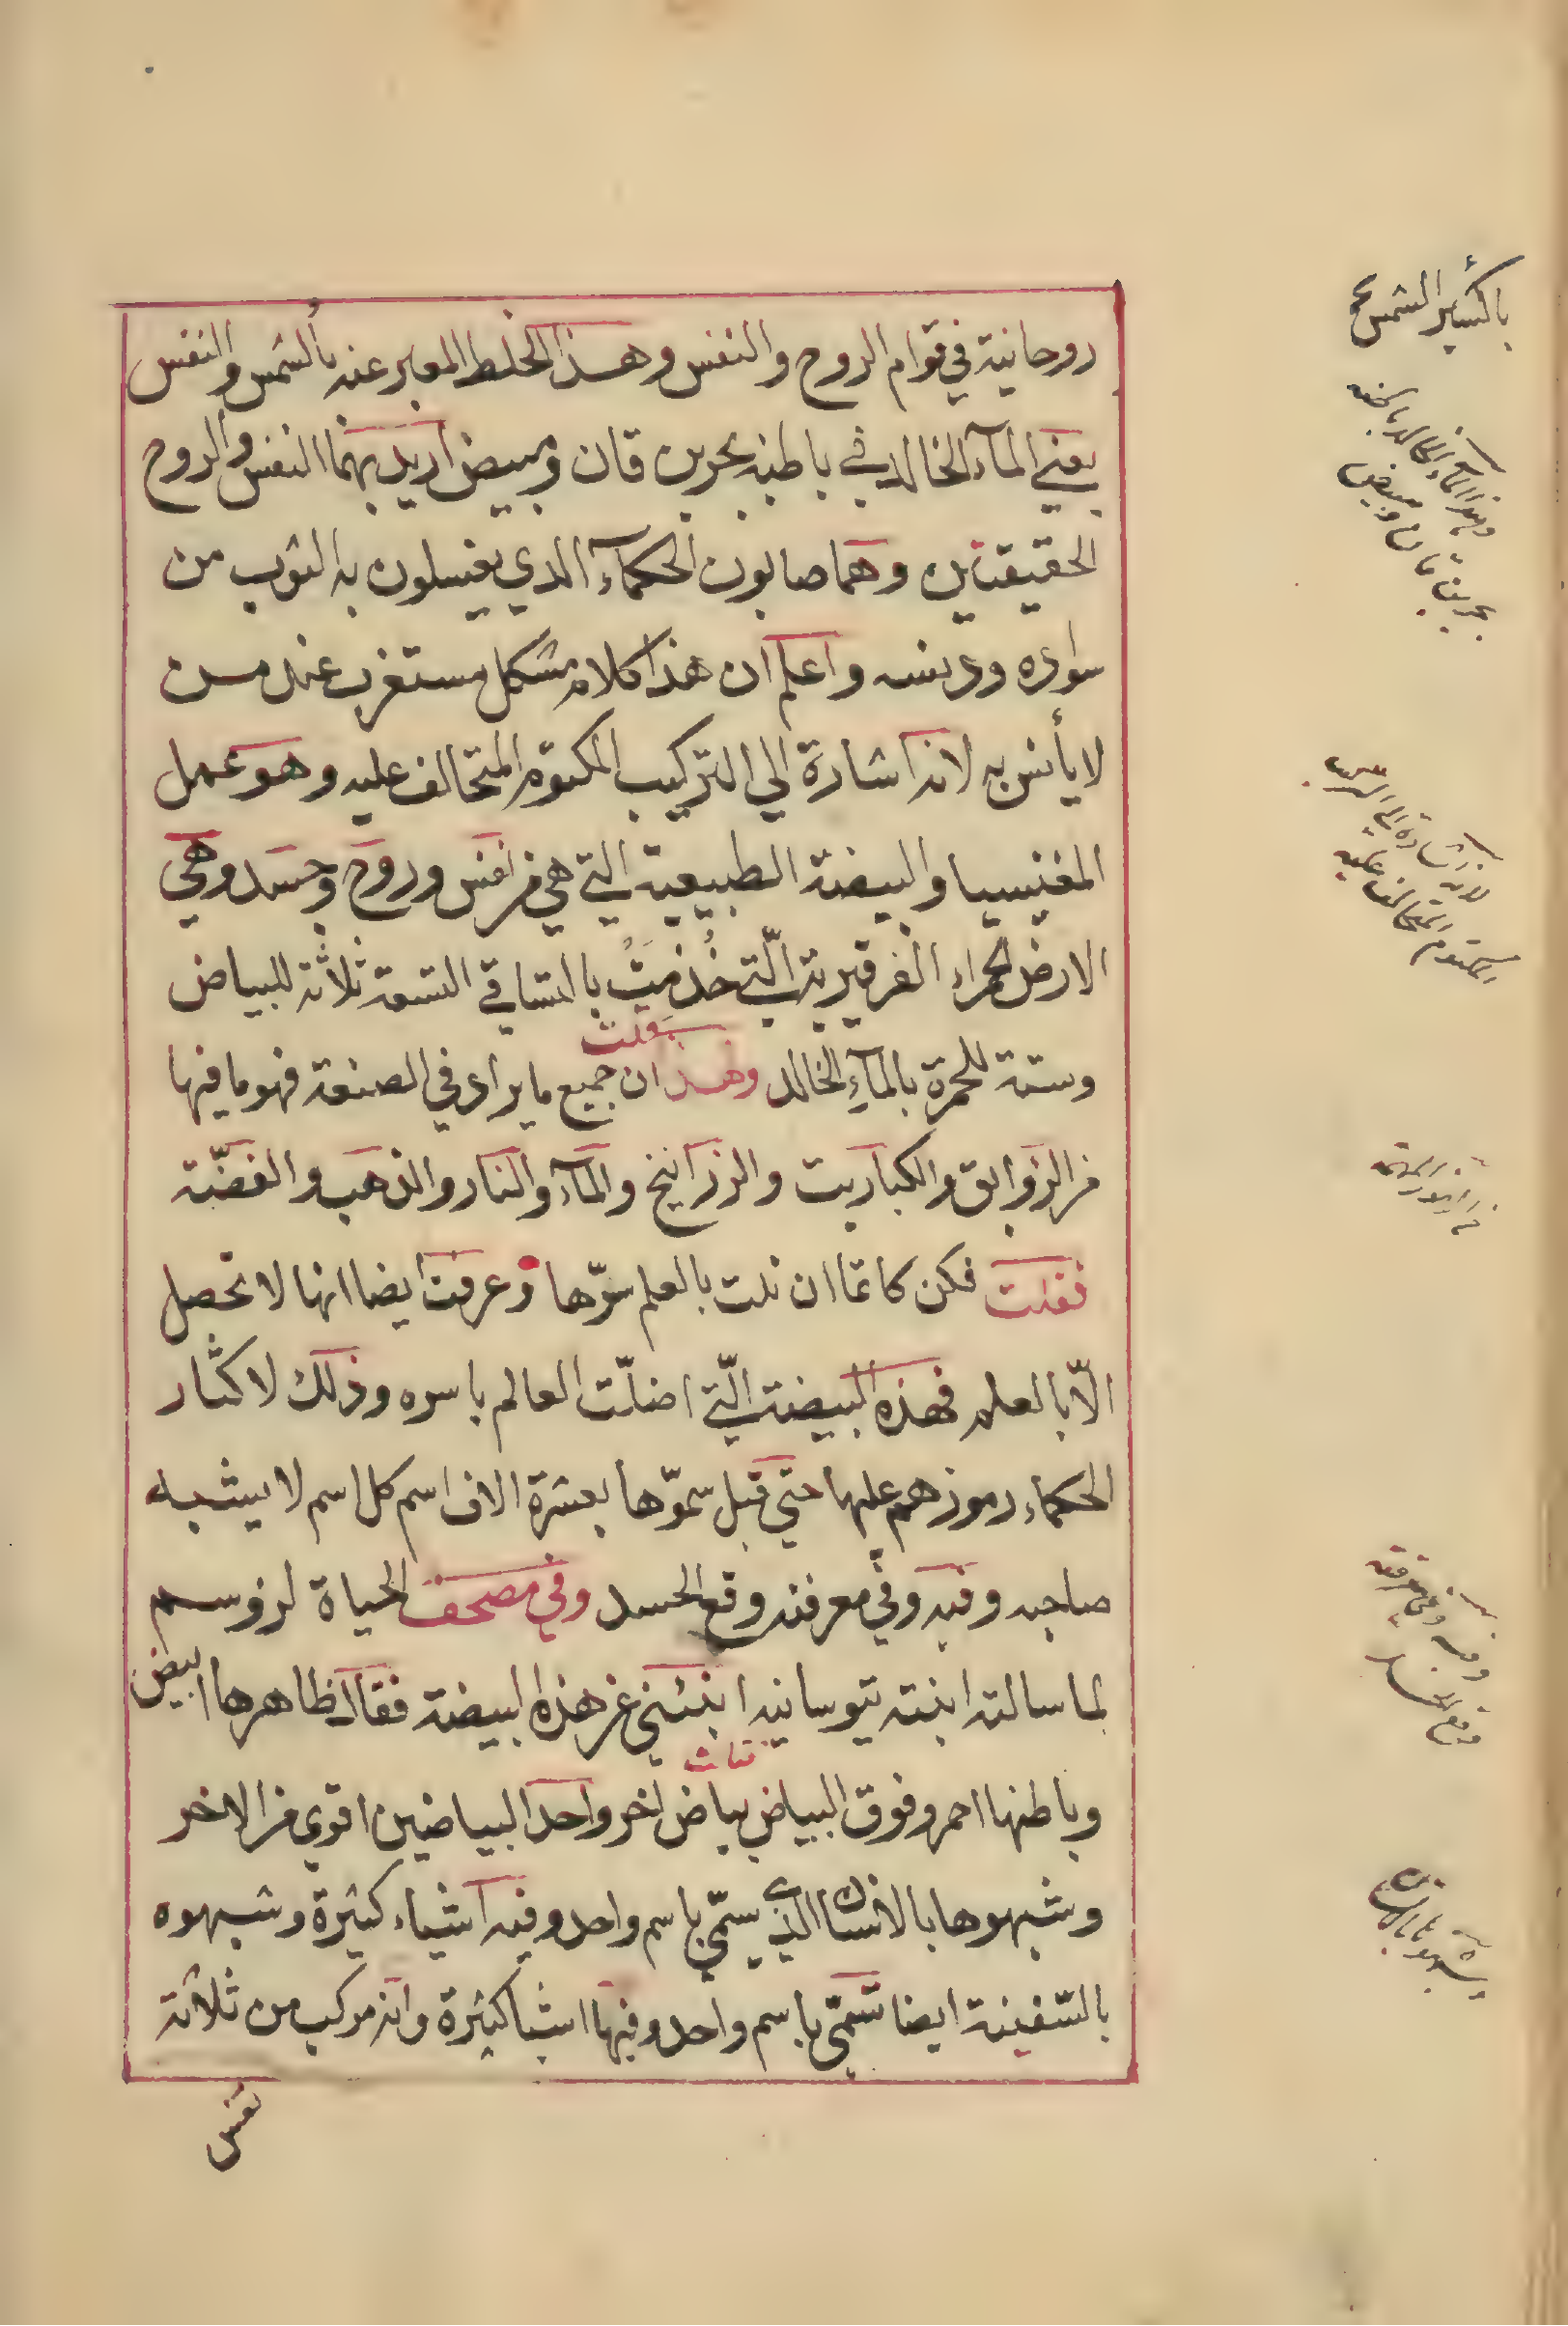 روحانية في قوام الروح والنفس وهذا الخلط المعبر عنه بالشمس والنفس
يعني المآء الخالد في باطنه بحرين قان ومبيض اريد بهما النفس والروح
الحقيقتاين وهما صابون الحكمآء الدي يغسلون به الثوب من
سواده ودنسه واعلم ان هذا كلام مشكل مستغرب عند من
لا يأنس به لانه اشارة الي التركيب المكتوم المتحالف عليه وهو عمل
المغنيسيا والبيضة الطبيعية التي هي من نفس وروح وجسد وهي
الارض الحمراء الفرفيرية الّتي خُدِمَتْ بالتساقي التسعة ثلاثة للبياض
وستة للحمرة بالمآءِ الخالد وهذا ان جميع ما يراد في الصنعة فهو ما فيها
قلت
من الزوابق والكباريت والزرانيخ والمآء والنار والذهب والفضّة
فقلت فكن كاتما ان نلت بالعلم سرّها وعرفت ايضا انها لا تحصل
الّا بالعلم فهذه البيضة الّتي اضلّت العالم باسره وذلك لاكثار
الحكماء رموزهم عليها حتي قيل سمّوها بعشرة الاف اسم كل اسم لا يشبه
صاحبه وفيه وفي معرفته وقع الحسد وفي مصحف الحياة لزوسم
لما سالته ابنته تيوسانيه انبئني عن هذه البيضة فقال ظاهرها ابيض
وباطنها احمر وفوق البياض بياض اخر واحد البياضين اقوي من الاخر
وشبهوها بالانسان الذي يسمّي باسم واحد وفيه اشياء كثيرة وشبهوه
بالسّفينة ايضا تسمّي باسم واحد وفيها اشيا كثيرة وانه مركب من ثلاثة
نفس
باكسير الشمس
وهذا المآء الخالد باطنه
بحرين قان ومبيض
لانه اشارة الي التركيب
المكتوم المتحالف عليه
وفيه وفي معرفته
وقع الحسد